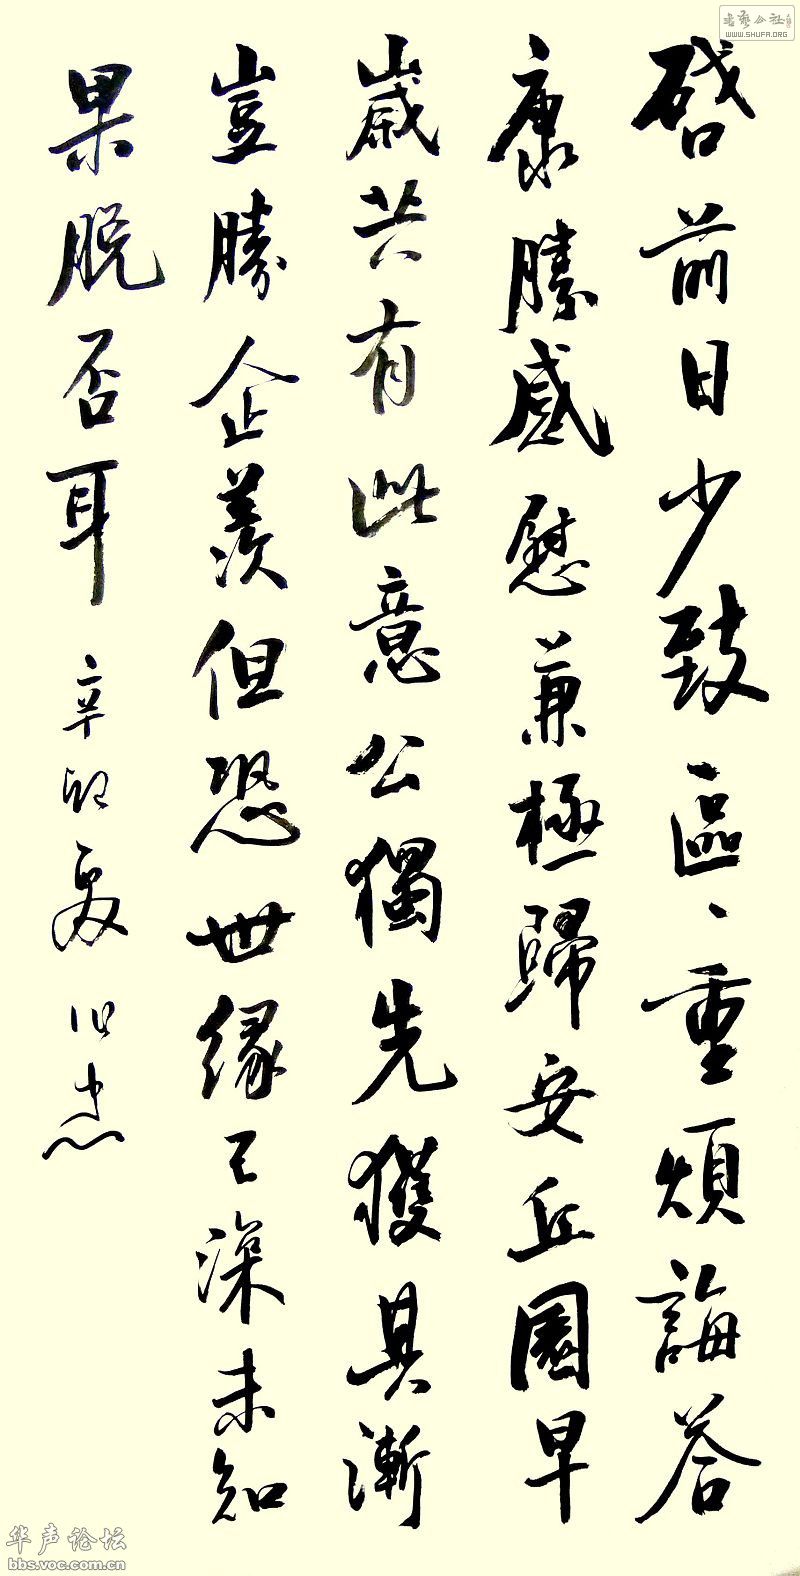 啓前日少致區〻重煩誨答
康勝感慰兼極歸安丘園早
歲共有此意公獨先獲其漸
豈勝企羨但恐世緣已深未知
果脫否耳
辛卯夏
書藝公社
WWW.SHUFA.ORG
华声论坛
bbs.voc.com.cn